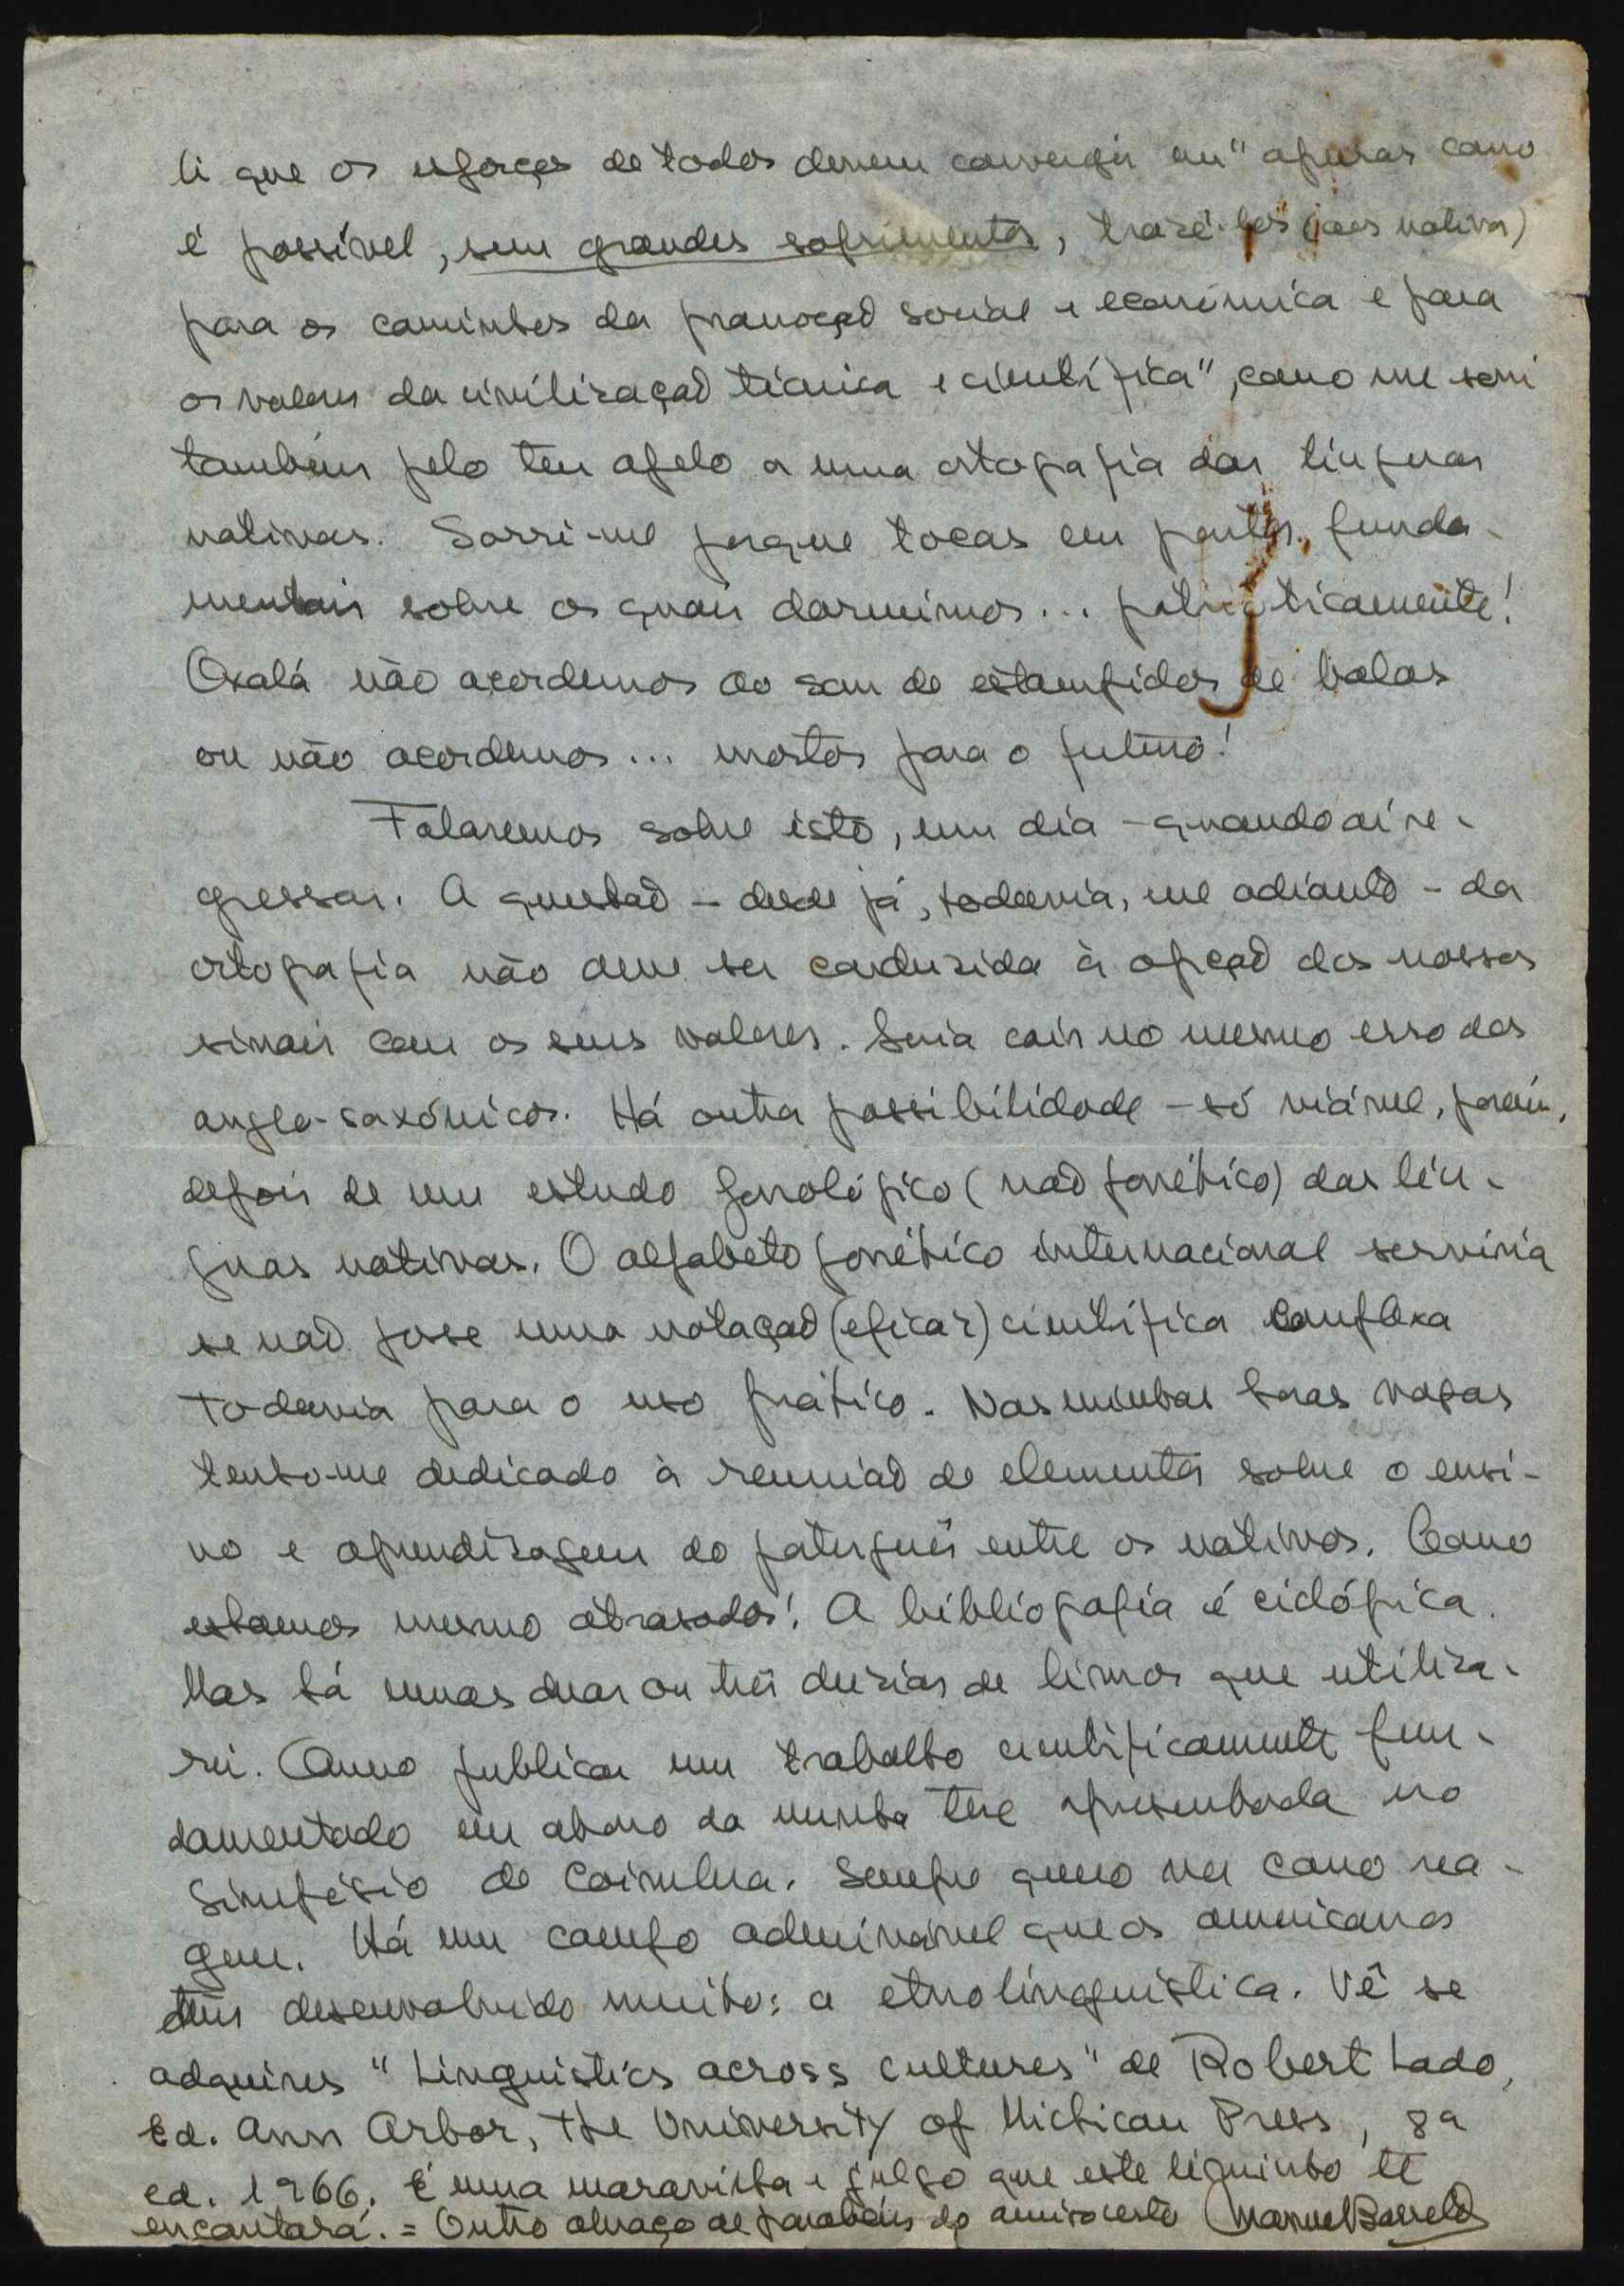 li que os esforços de todos devem convergir em "apenas como
é possível, sem grandes sofrimentos, trazê-los (aos nativos)
para os caminhos da promoção social e económica e para
os valores da civilização técnica e científica", como me sorri
também pelo teu apelo a uma ortografia das línguas
nativas. Sorri-me porque tocas em pontos funda-
mentais sobre os quais dormimos... patrioticamente!
Oxalá não acordemos ao som de estampidos de balas
ou não acordemos... mortos para o futuro!
Falaremos sobre isto, um dia - quando aí re-
gressar. A questão - desde já, todavia, me adianto - da
ortografia não deve ser conduzida à opção dos nossos
sinais com os seus valores. Seria cair no mesmo erro dos
anglo-saxónicos. Há outra possibilidade - só viável, porém,
depois de um estudo fonológico (não fonético) das lín-
guas nativas. O alfabeto fonético internacional serviria
se não fosse uma notação (eficaz) científica complexa
todavia para o uso prático. Nas minhas horas vagas
tenho-me dedicado à reunião de elementos sobre o ensi-
no e aprendizagem do português entre os nativos. Como
estamos mesmo atrasados! A bibliografia é ciclópica.
Mas há umas duas ou três dúzias de livros que utiliza-
rei. Quero publicar um trabalho cientificamente fun-
damentado em abono da minha tese apresentada no
Simpósio de Coimbra. Sempre quero ver como rea-
gem. Há um campo admirável que os americanos
têm desenvolvido muito: a etnolinguística. Vê se
adquires "Linguistics across cultures" de Robert Lado,
Ed. Ann Arbor, the University of Michican Press, 8a
ed. 1966. É uma maravilha e julgo que este livrinho te
encantará. = Outro abraço de parabéns do amigo certo Manuel Barreto